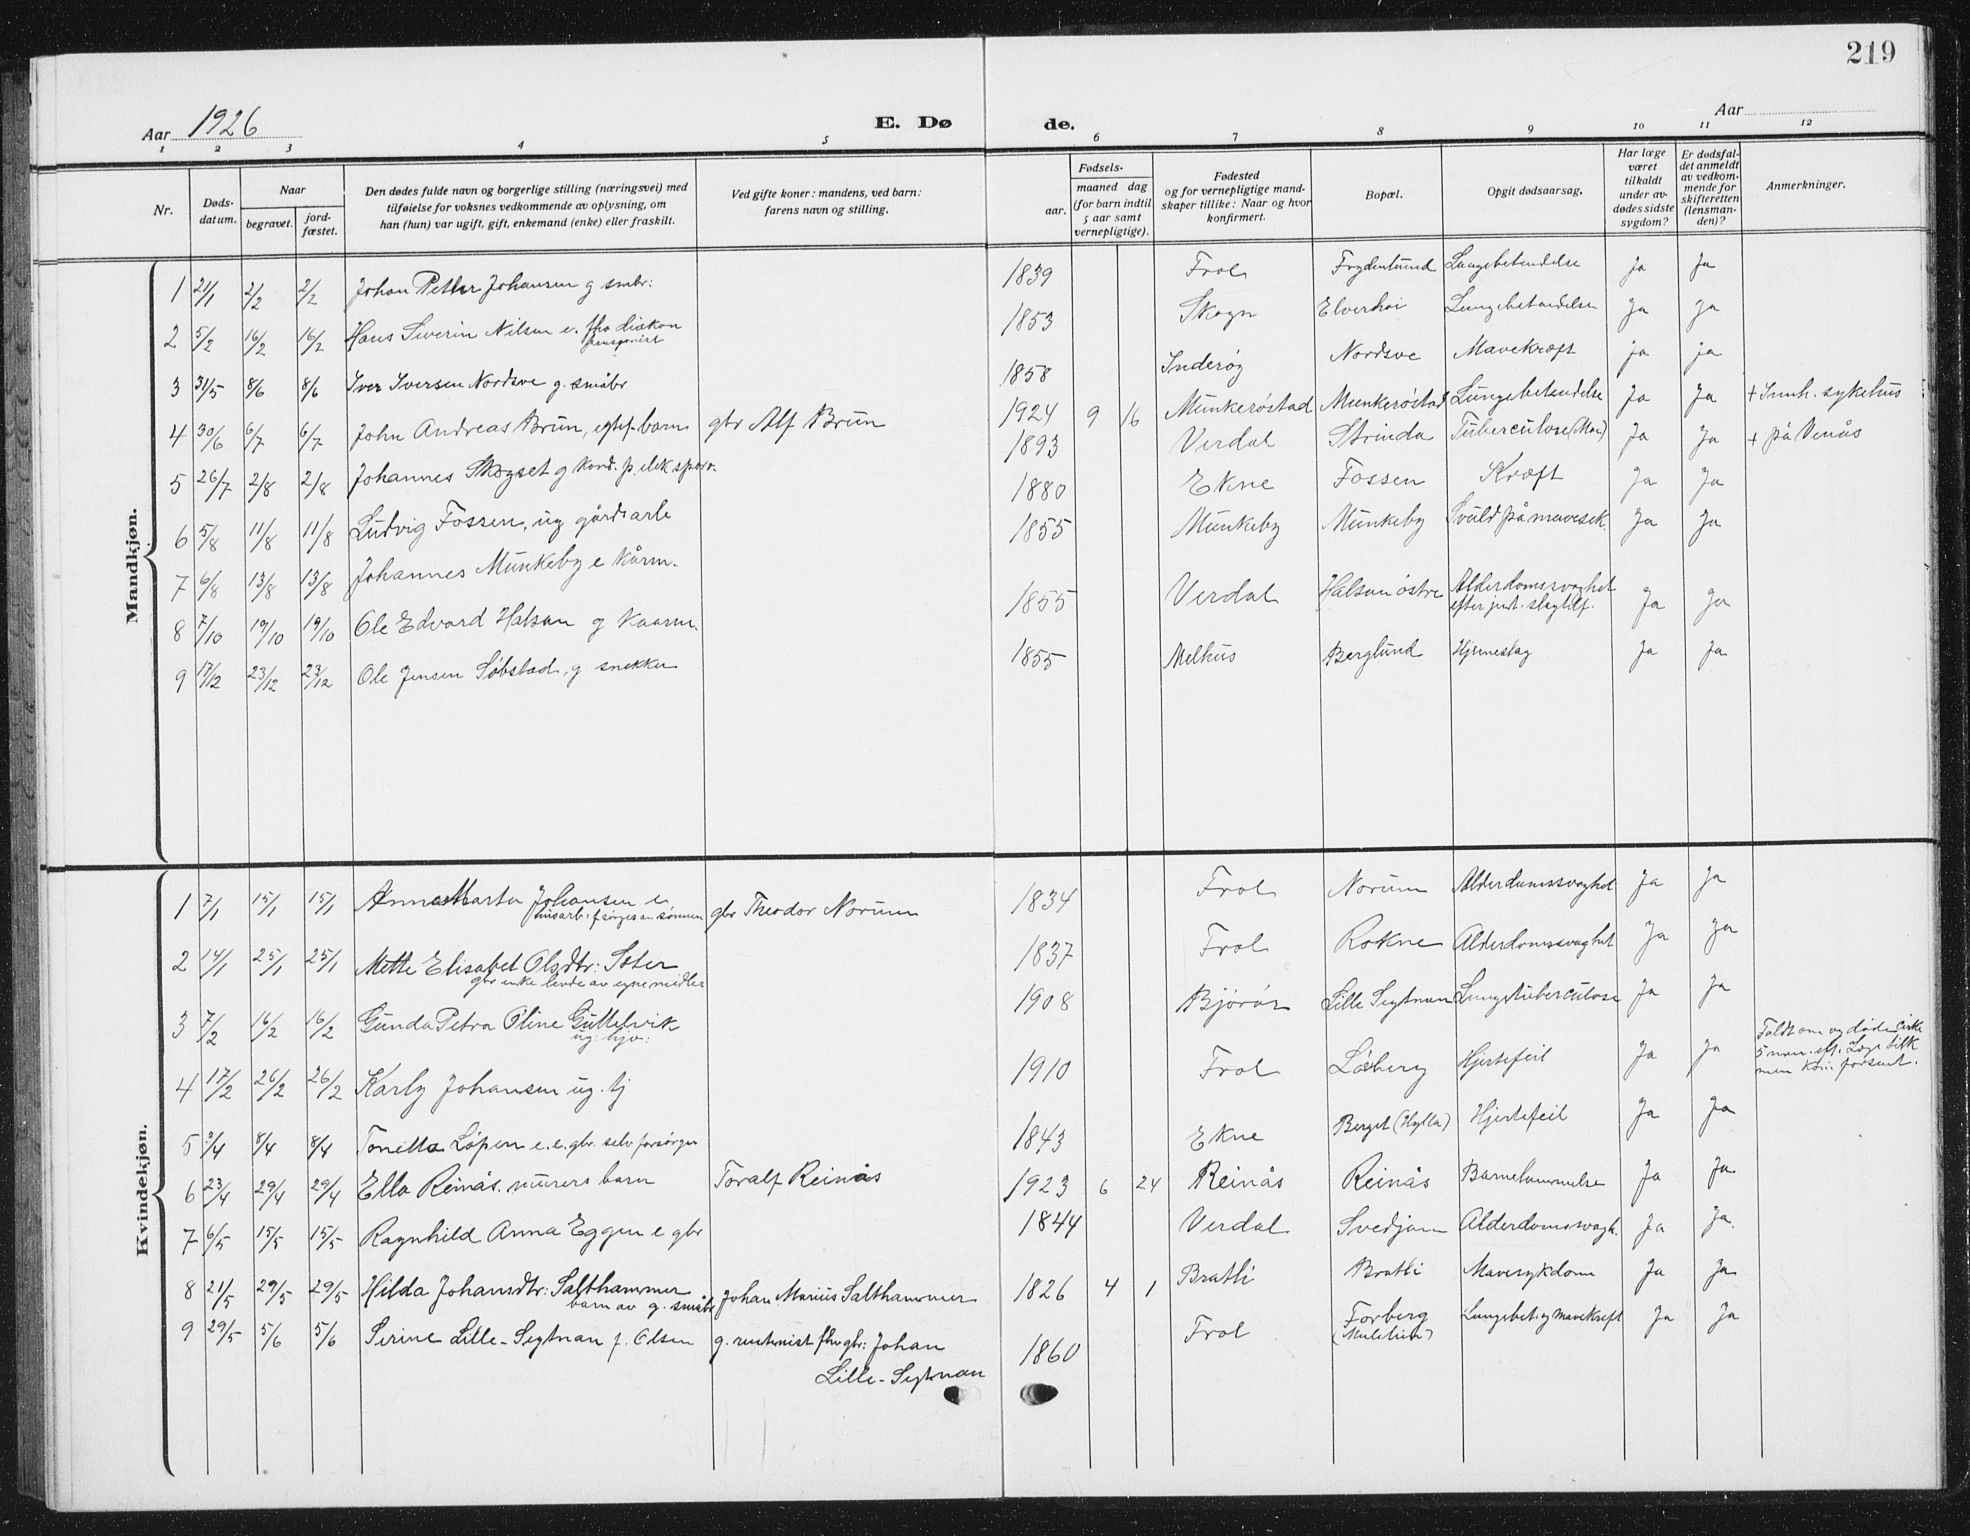 219
Aar 1926
E. Dø
de.
Aar
1 2 3 4 5 6 7 8 9 10 11 12
Nr.
Døds-
datum.
Naar
begravet.
jord-
fæstet.
Den dødes fulde navn og borgerlige stilling (næringsvei) med
tilføielse for voksnes vedkommende av oplysning, om
han (hun) var ugift, gift, enkemand (enke) eller fraskilt.
Ved gifte koner: mandens, ved barn:
farens navn og stilling.
Fødsels-
aar.
maaned dag
(for barn indtil
5 aar samt
vernepligtige).
Fødested
og for vernepligtige mand-
skaper tillike: Naar og hvor
konfirmert.
Bopæl.
Opgit dødsaarsag.
Har læge
været
tilkaldt
under av-
dødes sidste
sygdom?
Er dødsfal-
det anmeldt
av vedkom-
mende for
skifteretten
(lensman-
den)?
Anmerkninger.
Mandkjøn.
1 21/1 2/2 2/2 Johan Petter Johansen g smbr: 1839 Frol Frydenlund Lungebetendelse Ja Ja
2 5/2 16/2 16/2 Hans Severin Nilsen e. fhv diakon 1853 Skogn Elverhøi Lungebetændelse Ja Ja
pensjonist
3 31/5 8/6 8/6 Iver Iversen Nordsve g. småbr 1858 Inderøy Nordsve Mavekræft ja ja
4 30/6 6/7 6/7 John Andreas Brun, egtef. barn gbr Alf Brun 1924 9 16 Munkerøstad Munkerøstad Lungebetændelse Ja Ja + Innh. sykehus
5 26/7 2/8 2/8 Johannes Skogset g kond. p. elek sporv. 1893 Verdal Strinda Tuberculose Ja Ja + på Venås
6 5/8 11/8 11/8 Ludvig Fossen, ug gårdsarb 1880 Ekne Fossen Kræft Ja Ja
7 6/8 13/8 13/8 Johannes Munkeby e kårm. 1855 Munkeby Munkeby Svuld på mavesek. Ja Ja
8 7/10 19/10 19/10 Ole Edvard Halsan g kaarm. 1855 Verdal Halsan østre Alderdomssvaghet Ja Ja
efter slagtilf.
9 17/12 23/12 23/12 Ole Jensen Søbstad, g snekker 1855 Melhus Berglund Hjerneslag Ja Ja
Kvindekjøn.
1 7/1 15/1 15/1 Anna Marta Johansen e gbr Theodor Norum 1834 Frol Norum Alderdomssvaghet Ja Ja
husarb: forsørges av sønnen
2 14/1 25/1 25/1 Mette Elisabet Olsdtr: Soter 1837 Frol Rokne Alderdomssvaghet Ja Ja
gbr enke levde av egne midler
3 7/2 16/2 16/2 Gunda Petra Oline Gullelvik 1908 Bjørør Lille Segtnan Lungetuberculose Ja Ja
ug: hjv:
4 17/2 26/2 26/2 Karly Johansen ug. tj 1910 Frol Løsberg Hjertefeil Ja Ja Faldt om og døde cirka
5 min. eft. Læge tilk
men kom forsent.
5 3/4 8/4 8/4 Tonetta Løpen e. e. gbr. selv forsørger 1843 Ekne Berget (Hylla) Hjertefeil Ja Ja
6 23/4 29/4 29/4 Ella Reinås. murers barn Toralf Reinås 1923 6 24 Reinås Reinås Barnelammelse Ja Ja
7 6/5 15/5 15/5 Ragnhild Anna Eggen e gbr 1844 Verdal Svedjan Alderdomssvagh. Ja Ja
8 21/5 29/5 29/5 Hilda Johansdtr: Salthammer Johan Marius Salthammer 1826 4 1 Bratli Bratli Mavesykdom Ja Ja
barn av g. småbr
9 29/5 5/6 5/6 Serine Lille-Segtnan f. Olsen g. rentenist fhv gbr: Johan 1860 Frol Forberg Lungebet. og mavekreft Ja Ja
Lille-Segtnan